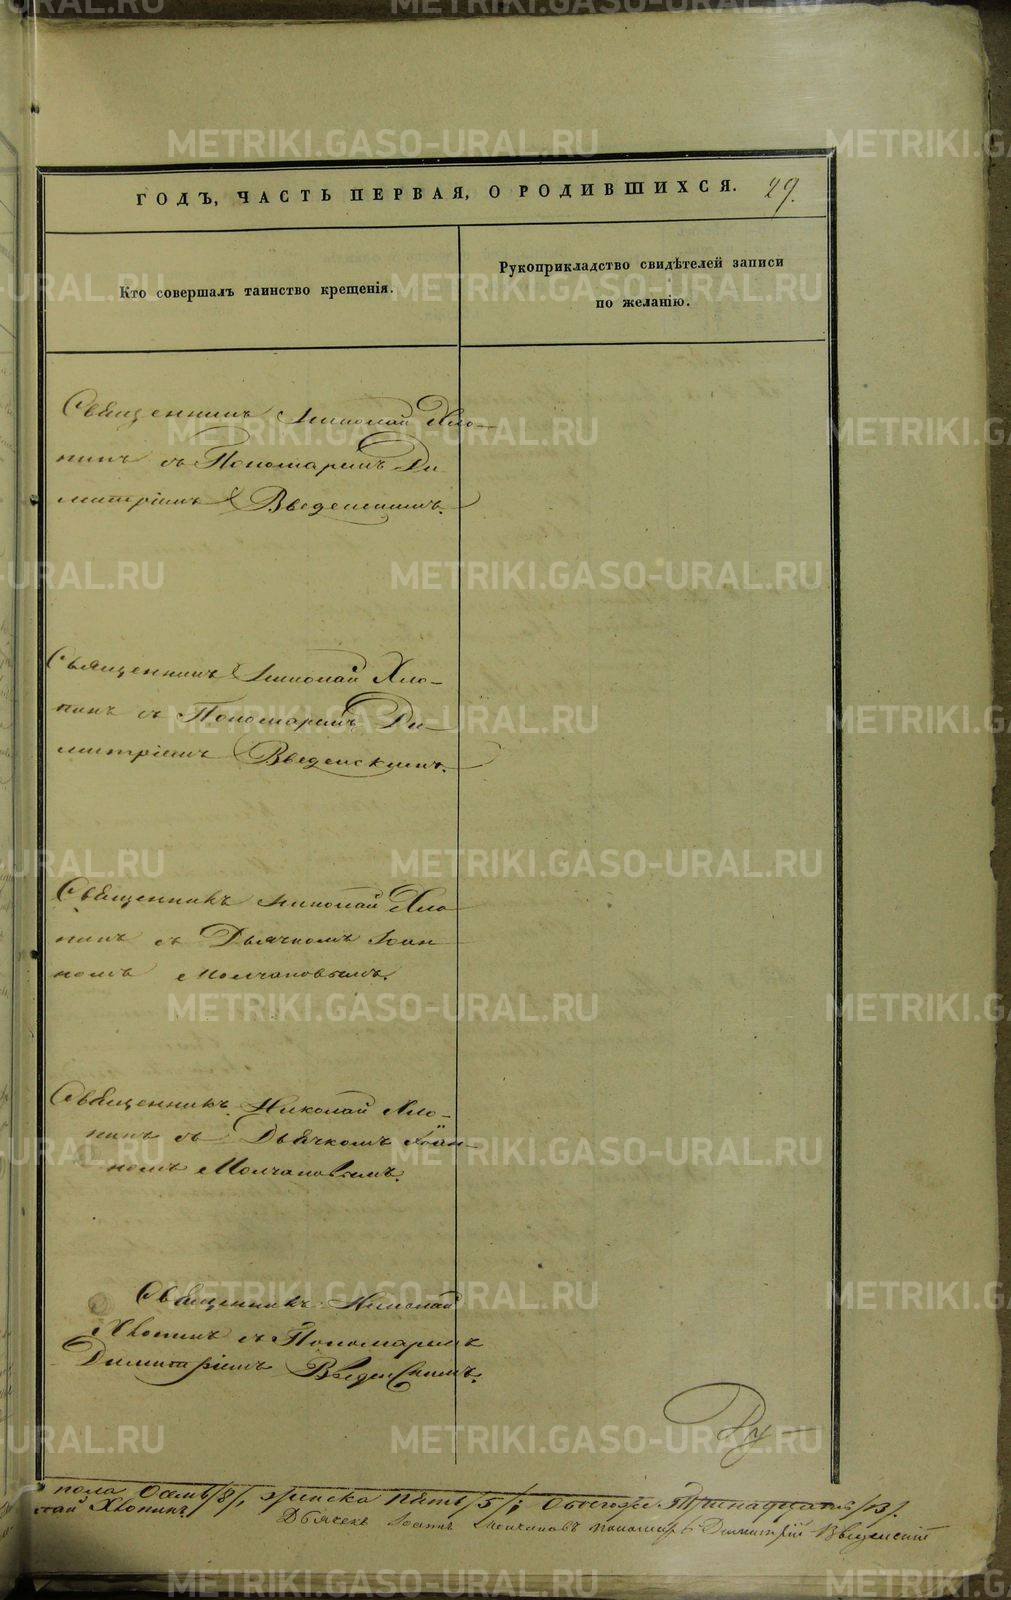 ГОДЪ, ЧАСТЬ ПЕРВАЯ, О РОДИВШИХСЯ. 29.
Кто совершалъ таинство крещенія.
Рукоприкладство свидѣтелей записи
по желанію.
Священникъ Николай Хло-
пинъ съ Пономаремъ Ди
митріемъ Введенскимъ.
Священникъ Николай Хло-
пинъ съ Пономаремъ Ди-
митріемъ Введенскимъ.
Священникъ Николай Хло
пинъ съ Дьячкомъ Іоан
номъ Молчановымъ.
Священникъ Николай Хло-
пинъ съ Дьячкомъ Іоан-
номъ Молчановымъ.
Священникъ Николай
Хлопинъ съ Пономаремъ
Димитріемъ Введенскимъ.
Ру
пола Осемь /8/, женска пять /5/; Обоегоже Тринадцать /13/.
лай Хлопинъ
Дьячекъ Іоаннъ Молчановъ пономарь Димитрій Введенскій
METRIKI.GASO-URAL.RU